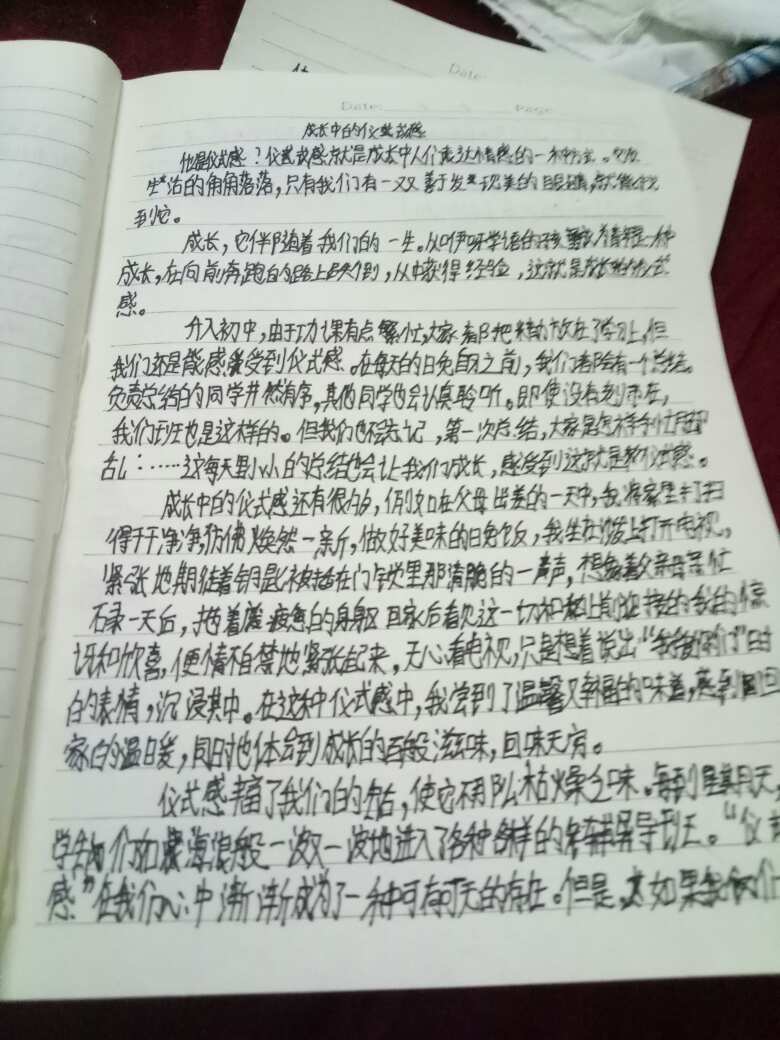 Date:
Page
Date:
成长中的仪式感
什么是仪式感？仪式感就是成长中人们表达情感的一种方式。它在
生活的角角落落，只有我们有一双善于发现美的眼睛，就能找
到它。
成长，它伴随着我们的一生。从咿呀学语的是一种
成长，在向前奔跑的路上跌倒，从中获得经验，这就是成长的仪式
感。
升入初中，由于功课有点繁忙，大家都把精力放在了学习上，但
我们还是能感受到仪式感。在每天的晚自习之前，我们都会有一个总结。
负责总结的同学井然有序，其他同学也会认真聆听。即使没有老师在，
我们班也是这样的。但我们也不会忘记，第一次总结，大家是怎样
乱……这每天里小小的总结也会让我们成长，感受到这就是仪式感。
成长中的仪式感还有很多，例如在父母出差的一天中，我将家里打扫
得干干净净，仿佛焕然一新，做好美味的晚饭，我坐在沙发上打开电视，
紧张地期待着钥匙被插在门锁里那清脆的一声，想象着父亲母亲忙
碌一天后，拖着疲惫的身躯回家后看见这一切和迎接的我的惊
讶和欣喜，便情不自禁地紧张起来，无心看电视，只是想着说出“我”时
的表情，沉浸其中。在这种仪式感中，我尝到了温馨又幸福的味道，感到回
家的温暖，同时也体会到成长的百般滋味，回味无穷。
仪式感丰富了我们的生活，使它不那么枯燥乏味。每到星期天，
学生们如海浪般一波又一波地进入了各种各样的辅导班。“仪式
感”在我们心中渐渐成为了一种可有可无的存在。但是，如果我们